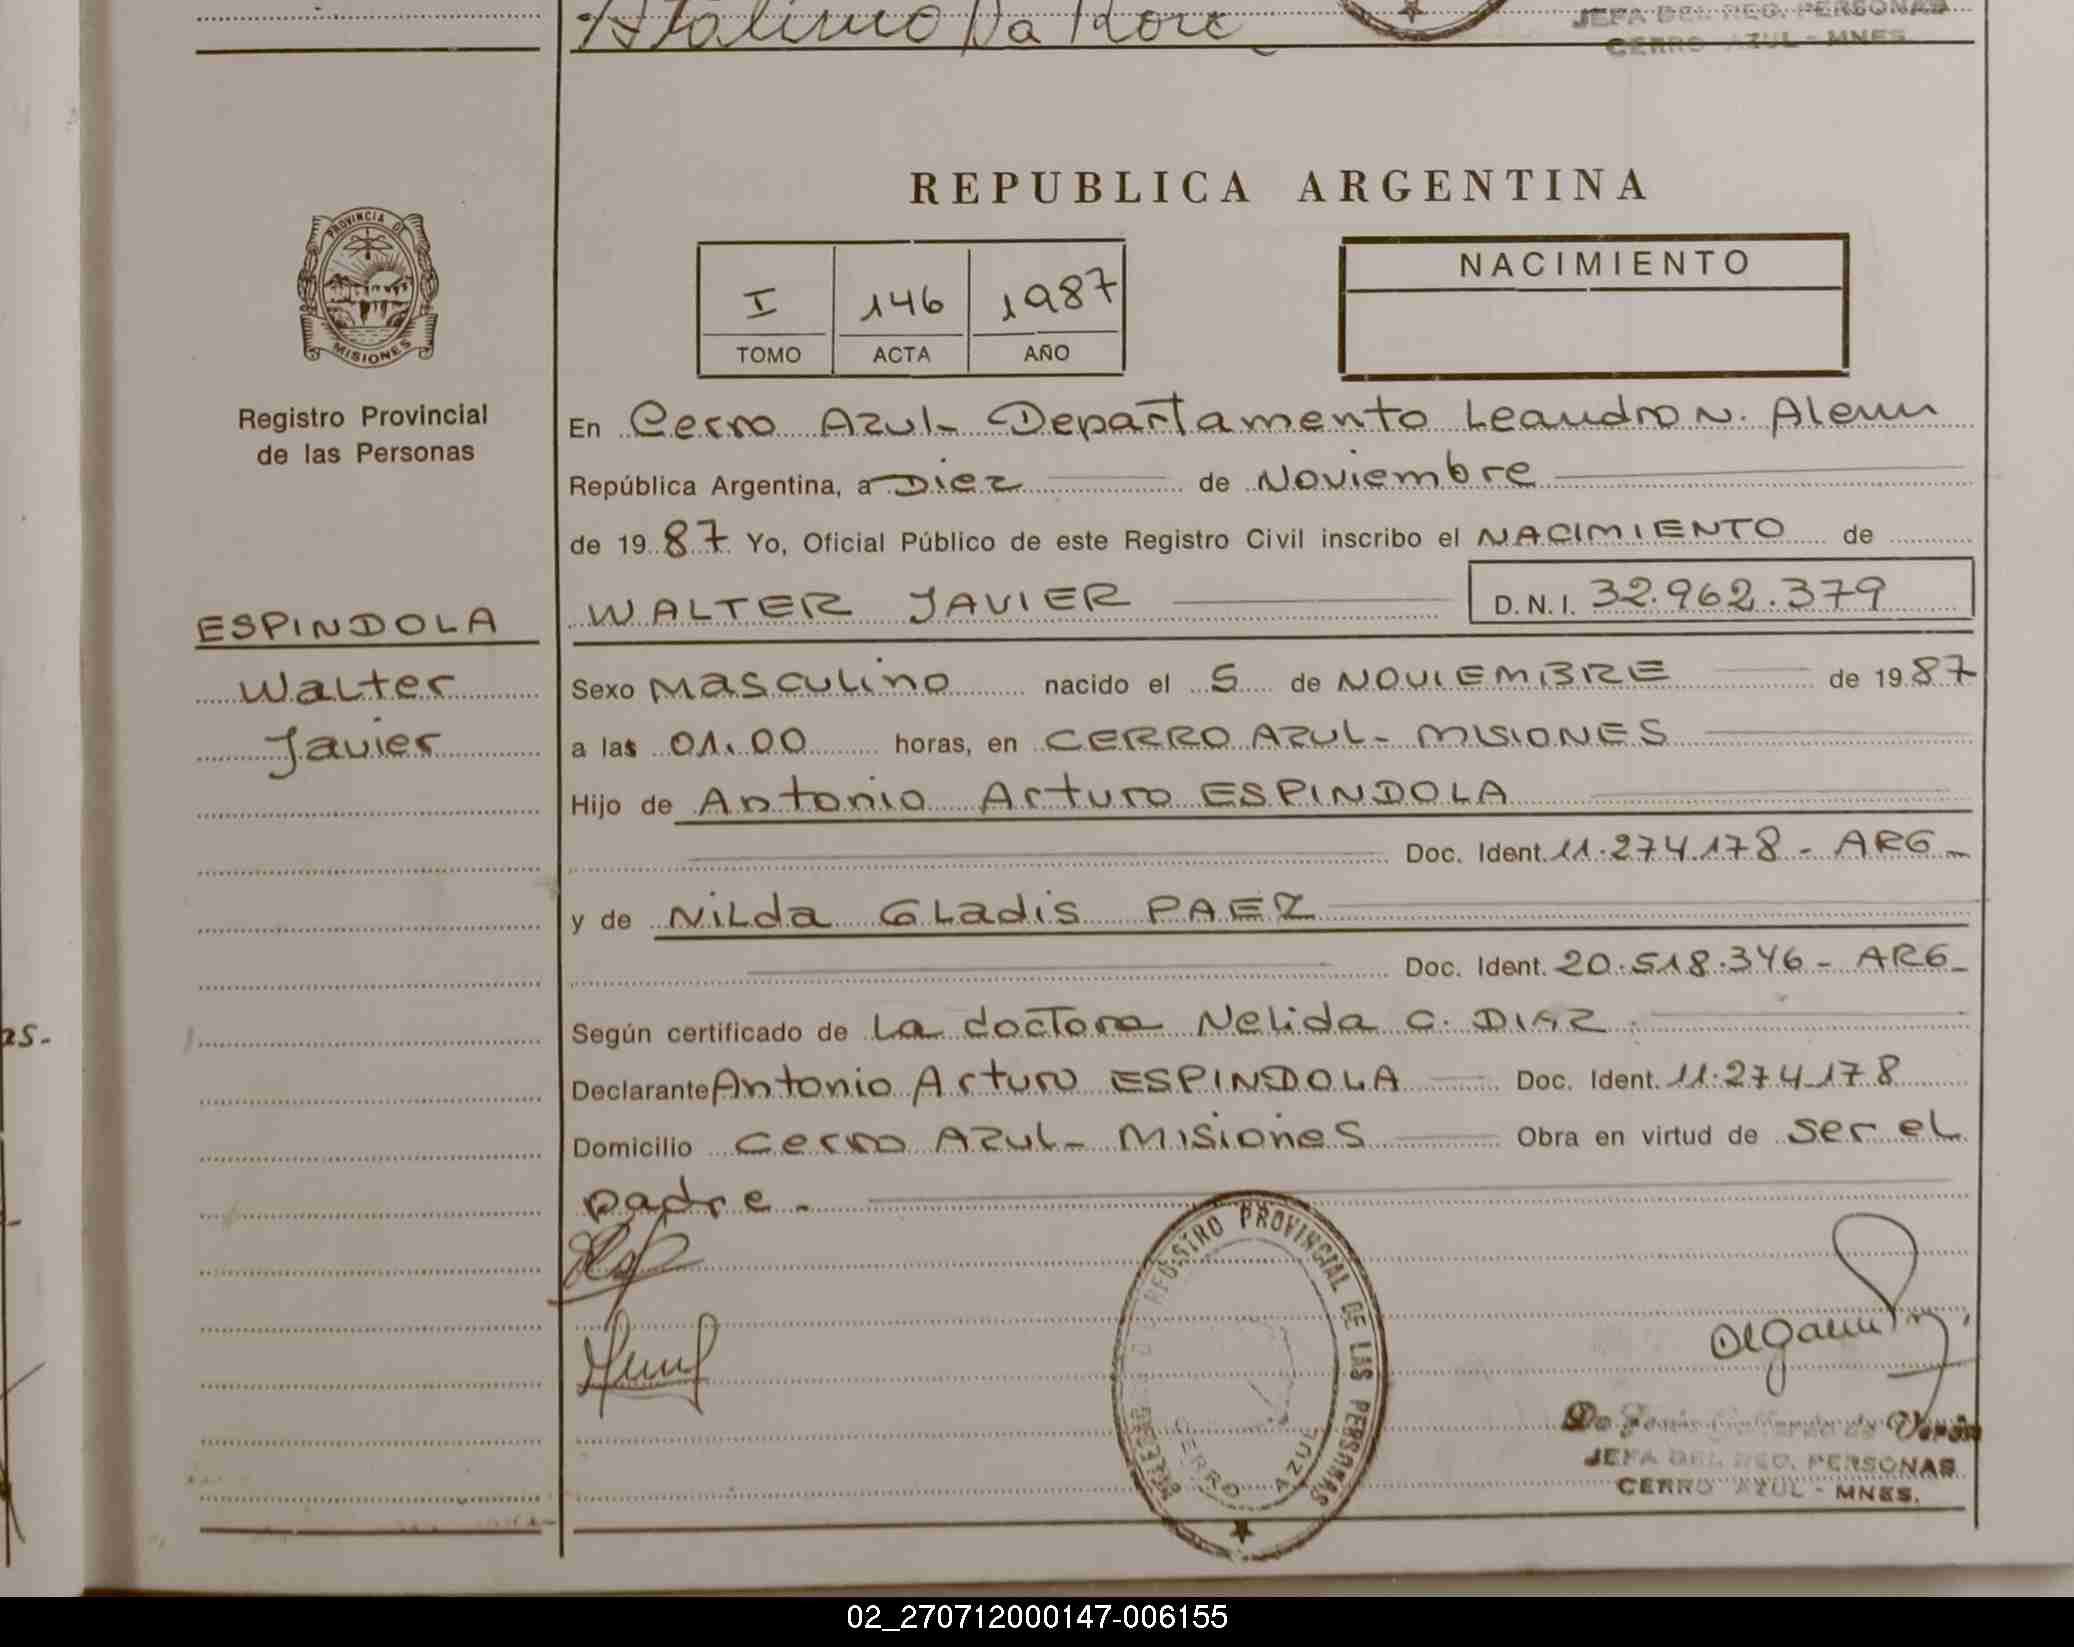 Atalino Da Roic
JEFA DEL REG. PERSONAS
CERRO AZUL - MNES.
REPUBLICA ARGENTINA
PROVINCIA DE
MISIONES
I
146
1987
TOMO
ACTA
AÑO
NACIMIENTO
Registro Provincial
de las Personas
En Cerro Azul- Departamento Leandro N. Alem
República Argentina, a Diez de Noviembre
de 1987 Yo, Oficial Público de este Registro Civil inscribo el NACIMIENTO de
WALTER JAVIER D.N.I. 32.962.379
ESPINDOLA
Walter
Javier
Sexo Masculino nacido el 5 de NOVIEMBRE de 1987
a las 01.00 horas, en CERRO AZUL- MISIONES
Hijo de Antonio Arturo ESPINDOLA
Doc. Ident. 11.274.178 - ARG -
y de Nilda Gladis PAEZ
Doc. Ident. 20.518.346 - ARG -
25.-
Según certificado de La doctora Nelida C. DIAZ.
Declarante Antonio Arturo ESPINDOLA Doc. Ident. 11.274.178
Domicilio Cerro Azul- Misiones Obra en virtud de ser el
padre.-
REGISTRO PROVINCIAL DE LAS PERSONAS
CERRO AZUL
JEFA DEL REG. PERSONAS
CERRO AZUL - MNES.
02_270712000147-006155